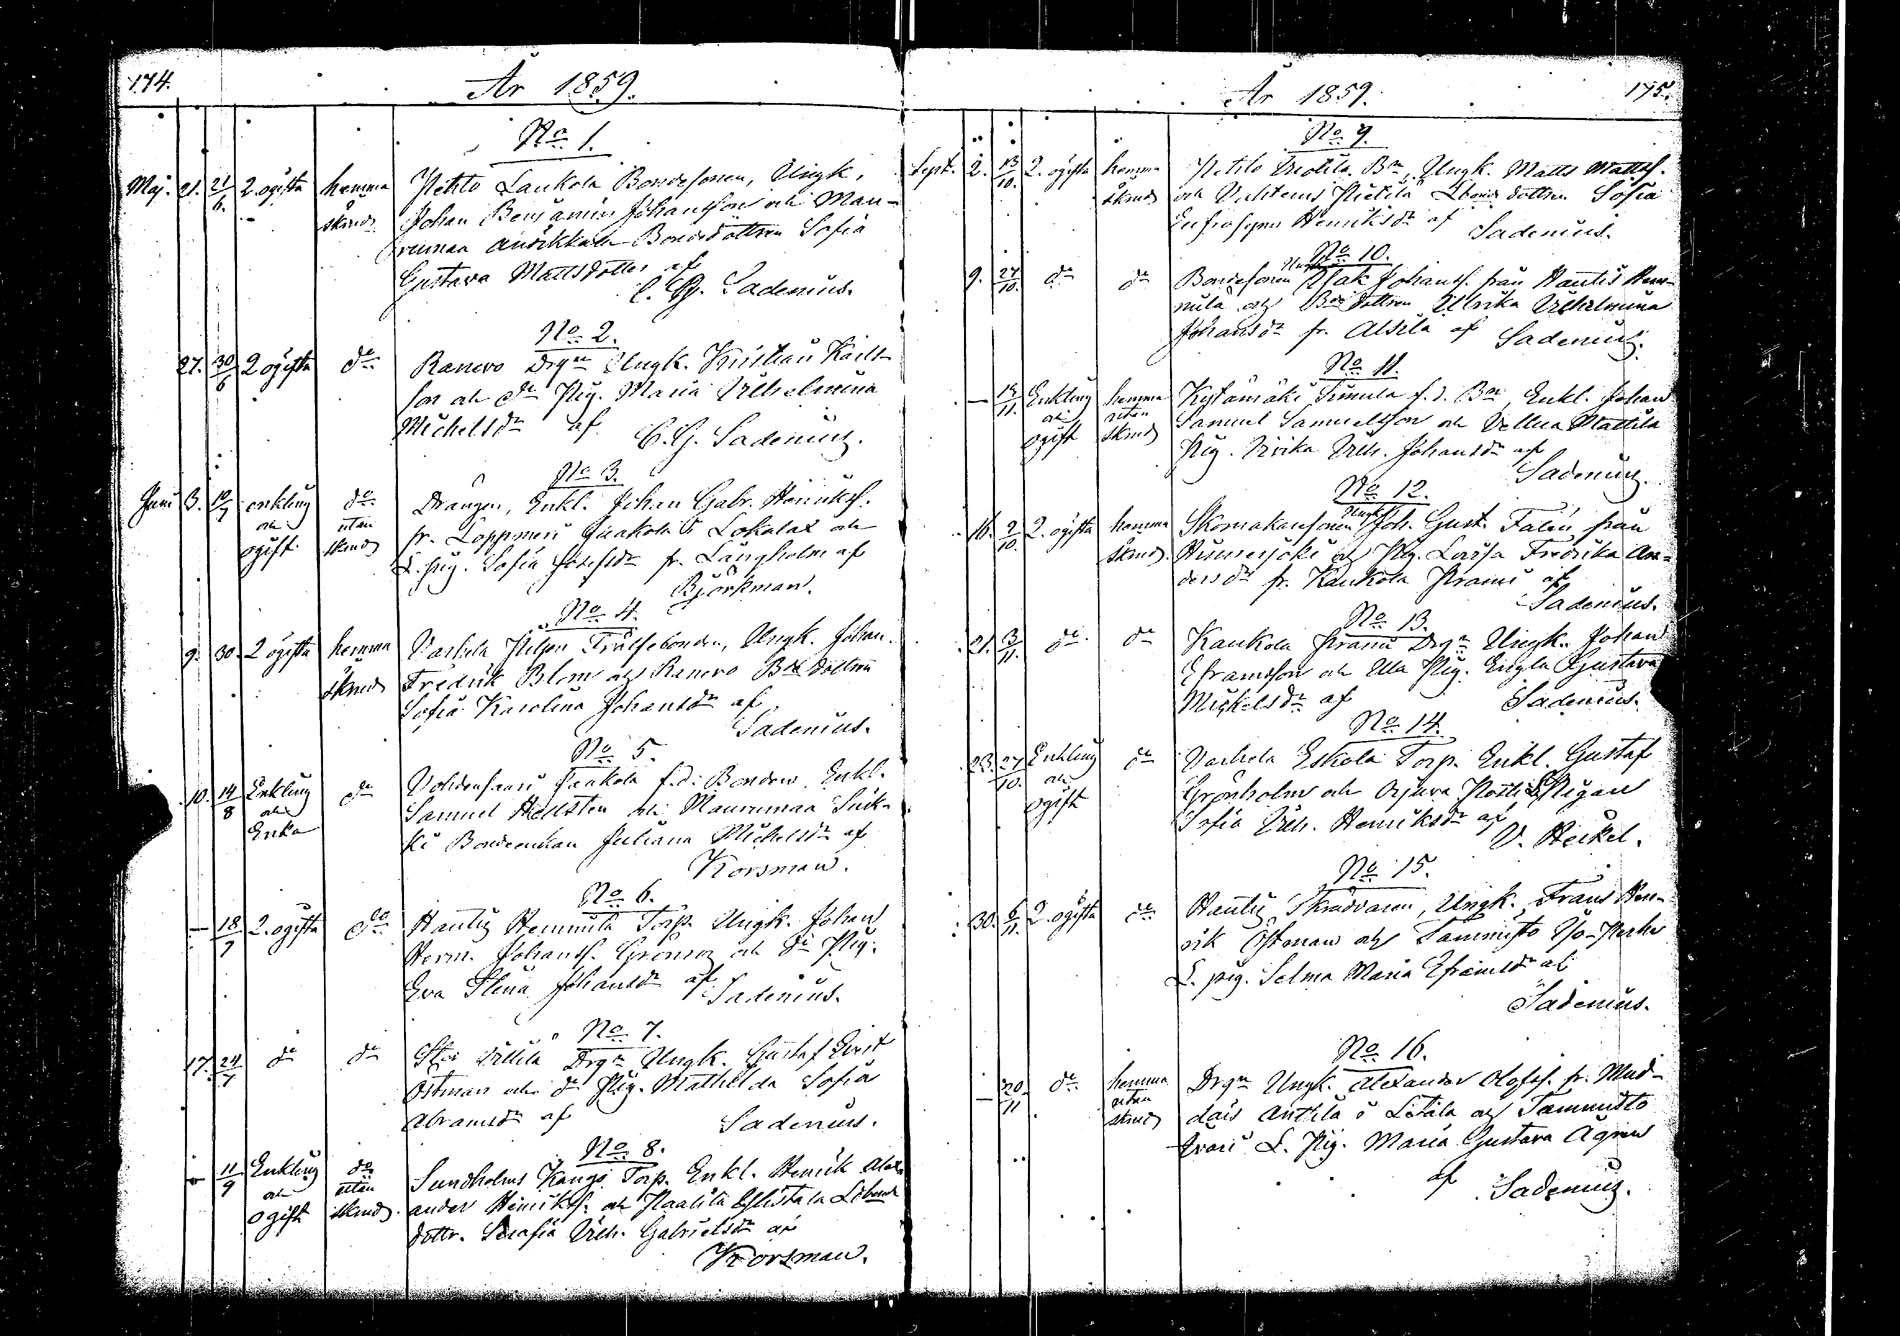 174.
År 1859.
No 1.
Maj. 21. 21/6. 2. ogifta hemma skrud
Pehto Laukola Bondesonen, Ungk.
Johan Benjamin Johansson och Mau-
rumaa Bondedottren Sofia
Gustava Mattsdotter af
C. G. Sadenius.
No 2.
27. 30/6 2 ogifta do
Ranevo Drgn Ungk. Kristian Karls-
son och do Pig. Maria Vilhelmina
Michelsdr af
C. G. Sadenius.
No 3.
Juni 3. 10/7 enkling och ogift. do utan skrud
Drängen, Enkl. Johan Gabr. Henriksf.
fr. Jaakola i Lokalax och
L. pig. Sofia Josefsdr fr. Långholm af
Björkman.
No 4.
9. 30. 2 ogifta hemma skrud
Varhela Frälsebonden, Ungk. Johan
Fredrik Blom och Ranevo Bde dottren
Sofia Karolina Johansdr af
Sadenius.
No 5.
10. 14/8 Enkling och Enka do
Jaakola f.d. Bonden, Enkl.
Samuel Hellsten och Maurumaa
Bondeenkan Juliana Michelsdr af
Korsman.
No 6.
— 18/7 2. ogifta do
Hautis Hemmilä Torp. Ungk. Johan
Herm. Johansf. Grönroos och do Pig.
Eva Stina Johansdr af
Sadenius.
No 7.
17. 24/7 do do
Drgn Ungk. Gustaf Evert
Östman och do Pig. Mathilda Sofia
Abramsdr af
Sadenius.
No 8.
— 11/9 Enkling och ogift do utan skrud.
Sundholms Torp. Enkl. Henrik Alex-
ander Henriksf. och
dottr. Serafia Vilh. Gabrielsdr af
Korsman.
År 1859.
175.
No 9.
Sept. 2. 13/10. 2. ogifta hemma skrud
Bn, Ungk. Matts Mattsf.
och Pietilä dottren Sofia
Eufrosyna Henriksdr af
Sadenius.
No 10.
9. 27/10. do do
Bondesonen Ungk. Isak Johansf. från Hautis Hem-
milä och Bde dottren Ulrika Vilhelmina
Johansdr fr. Alsila af
Sadenius.
No 11.
— 13/11. Enkling och ogift hemma utan skrud
Kystämäki Simula f.d. Bn, Enkl. Johan
Samuel Samuelsson och Vellua Mattila
Pig. Ulrika Vilh. Johansdr af
Sadenius.
No 12.
16. 2/10. 2. ogifta hemma skrud.
Skomakarsonen Ungk. Joh. Gust. Falin från
och Pig. Lovisa Fredrika An-
dersdr fr. Kaukola Prami af
Sadenius.
No 13.
21. 3/11. do do
Kaukola Prami Drgn Ungk. Johan
Eframsson och Ulla Pig. Engla Gustava
Mickelsdr af
Sadenius.
No 14.
23. 27/10. Enkling och ogift do
Varhela Eskola Torp. Enkl. Gustaf
Grönholm och Pigan
Sofia Vilh. Henriksdr af
V. Heikel.
No 15.
30. 6/11. 2. ogifta do
Hautis Skräddaren, Ungk. Frans Hen-
rik Östman och Tammisto
L. pig. Selma Maria Efraimsdr af
Sadenius.
No 16.
— 20/11 do hemma utan skrud
Drgn Ungk. Alexander Olofsf. fr. Mud-
dais Anttila i Letala och Tammisto
Ivari L. Pig. Maria Gustava Ågren
af
Sadenius.